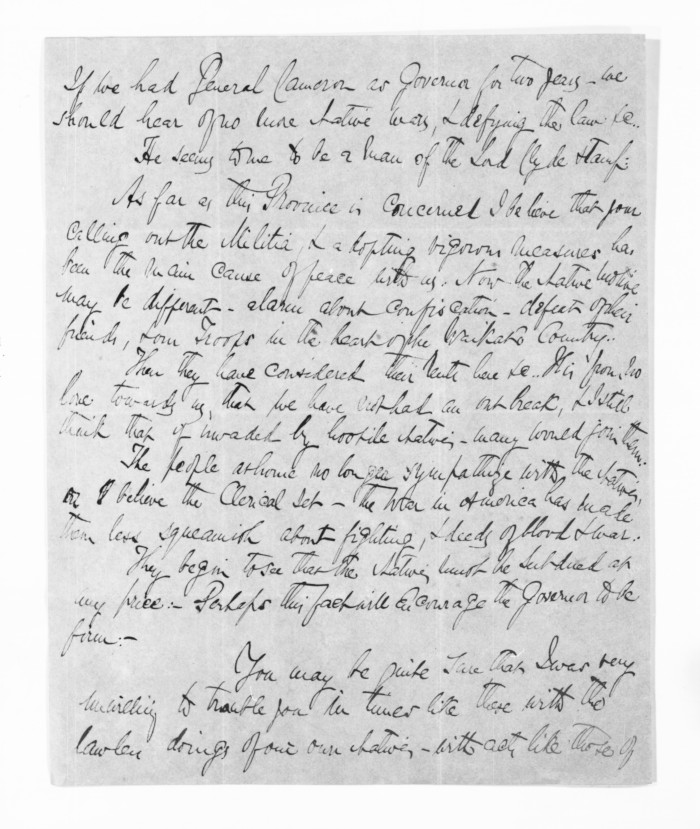 If we had General Cameron as Governor for two years - we
should hear of no more Native wars, & defying the law &c..
He seems to me to be a man of the Lord Clyde stamp:
As far as this Province is concerned I believe that your
calling out the Militia, & adopting vigorous measures has
been the main cause of peace with us. Now the Native motive
may be different - alarm about confiscation - defeat of their
friends, & our Troops in the heart of the Waikato Country..
Then they have considered their Rents here &c.. It is from no
love towards us, that we have not had an outbreak, & I still
think that if invaded by hostile Natives - many would join them:
The people at home no longer sympathize with the Natives,
or I believe the Clerical Set - the War in America has made
them less squeamish about fighting, & deeds of blood & war:
They begin to see that the Natives must be subdued at
any price:- Perhaps this fact will encourage the Governor to be
firm:-
You may be quite sure that I was very
unwilling to trouble you in times like these with the
lawless doings of our own Natives - with acts like those of